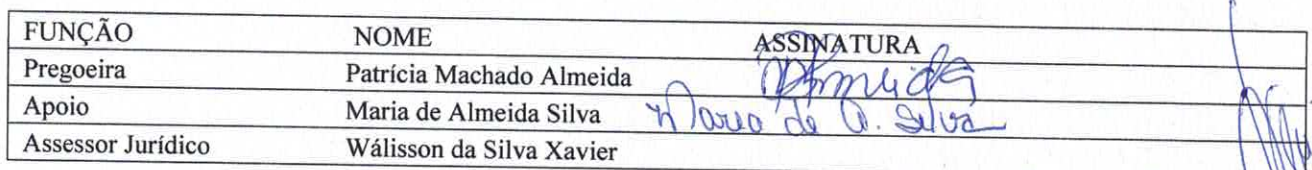 FUNÇÃO NOME ASSINATURA
Pregoeira Patrícia Machado Almeida PAlmeida
Apoio Maria de Almeida Silva Maria de A. Silva
Assessor Jurídico Wálisson da Silva Xavier